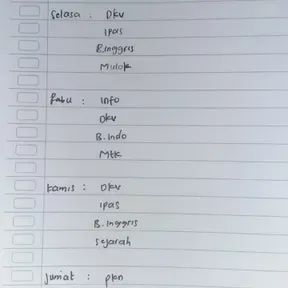 Selasa : Dkv
Ipas
B.Inggris
Midok
Rabu : Info
Dkv
B. Indo
Mtk
kamis : Dkv
Ipas
B. Inggris
Sejarah
Jumat : pkn